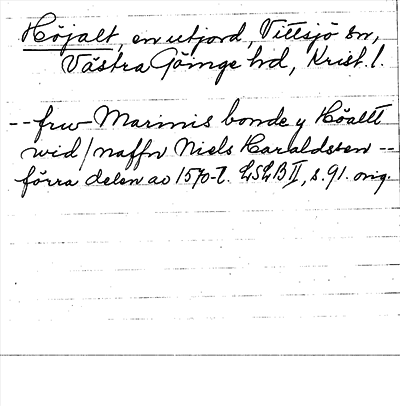 Höjalt, en utjord, Vittsjö sn,
Västra Göinge hd, Krist. l.
-- frw Marinis bonde y Höallt
wid/naffn Niels Haraldsten --
förra delen av 1570-t. LSLB II, s. 91. orig.